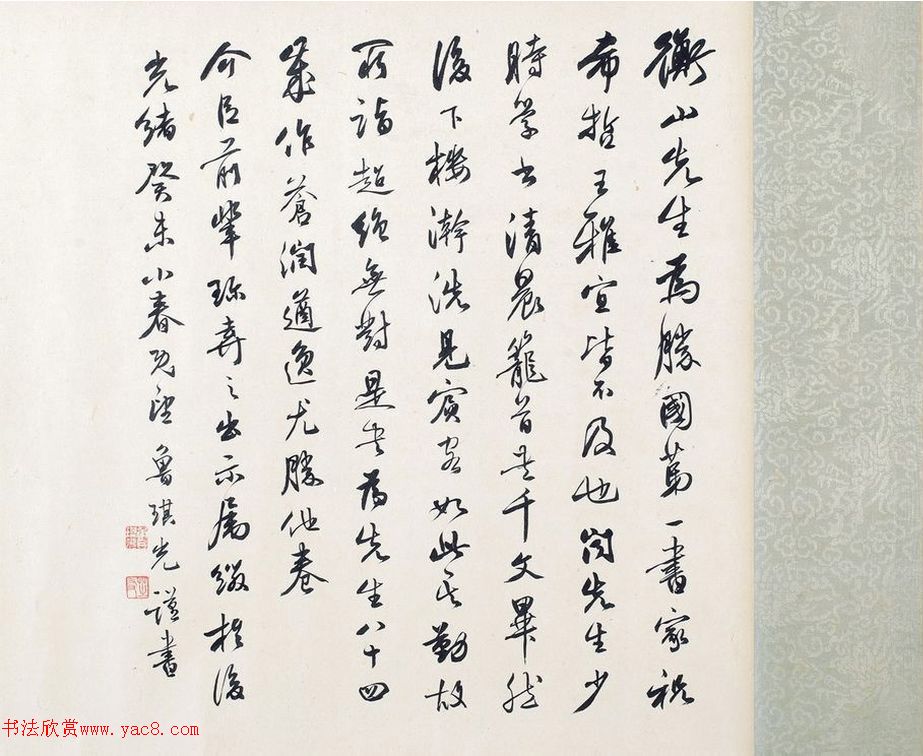 衡山先生為勝國第一書家祝
希哲王雅宜皆不及也聞先生少
時學書清晨籠首書千文畢然
後下樓漱洗見賓客如此其勤故
所詣超絕無對是卷為先生八十四
歲作蒼潤遒逸尤勝他卷
介臣前輩珍弆之出示屬綴於後
光緒癸未小春既望魯琪光謹書
书法欣赏www.yac8.com